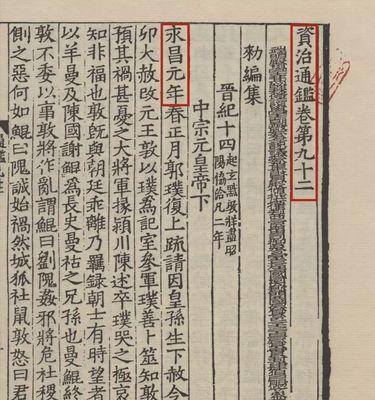 資治通鑑卷第九十二
勑編集
晉紀十四起玄黓敦牂盡昭陽協洽凡二年
中宗元皇帝下
永昌元年春正月郭璞復上疏請因皇孫生下赦令
卯大赦改元王敦以璞為記室參軍璞善卜筮知敦
預其禍甚憂之大將軍掾潁川陳述卒璞哭之極哀
知非福也敦既與朝廷乖離乃羈録朝士有時望者
以羊曼及陳國謝鯤為長史曼祜之兄孫也曼鯤終
敦不委以事敦將作亂謂鯤曰劉隗姦邪將危社稷
側之惡何如鯤曰隗誠始禍然城狐社鼠敦怒曰君